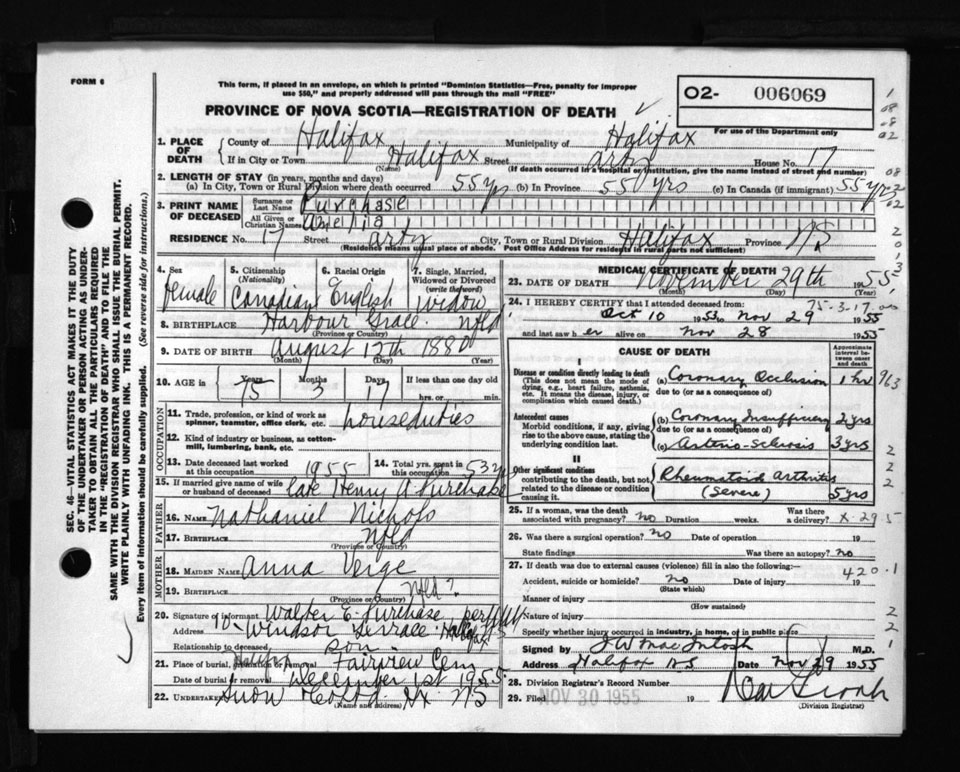 FORM 6
This form, if placed in an envelope, on which is printed "Dominion Statistics—Free, penalty for improper
use $50," and properly addressed will pass through the mail "FREE"
PROVINCE OF NOVA SCOTIA—REGISTRATION OF DEATH
O2- 006069
For use of the Department only
1. PLACE OF DEATH County of Halifax Municipality of Halifax
If in City or Town Halifax Street Arty House No. 17
(Name) (If death occurred in a hospital or institution, give the name instead of street and number)
2. LENGTH OF STAY (in years, months and days)
(a) In City, Town or Rural Division where death occurred 55 yrs (b) In Province 55 yrs (c) In Canada (if immigrant) 55 yrs
3. PRINT NAME OF DECEASED Surname or Last Name Purchase
All Given or Christian Names Amelia
RESIDENCE No. 17 Street Arty City, Town or Rural Division Halifax Province NS
(Residence means usual place of abode. Post Office Address for residents in rural parts not sufficient)
4. Sex Female
5. Citizenship (Nationality) Canadian
6. Racial Origin English
7. Single, Married, Widowed or Divorced (write the word) widow
8. BIRTHPLACE Harbour Grace Nfld
(Province or Country)
9. DATE OF BIRTH August 12th 1880
(Month) (Day) (Year)
10. AGE in Years Months Days If less than one day old
75 3 17 hrs. or min.
OCCUPATION
11. Trade, profession, or kind of work as spinner, teamster, office clerk, etc. houseduties
12. Kind of industry or business, as cotton-mill, lumbering, bank, etc.
13. Date deceased last worked at this occupation 1955
14. Total yrs. spent in this occupation 53 yrs
15. If married give name of wife or husband of deceased late Henry A Purchase
FATHER
16. NAME Nathaniel Nichols
17. BIRTHPLACE Nfld
(Province or Country)
MOTHER
18. MAIDEN NAME Anna Verge
19. BIRTHPLACE Nfld?
(Province or Country)
20. Signature of informant Walter E. Purchase per
Address Windsor Terrace Halifax
Relationship to deceased son
21. Place of burial, cremation or removal Halifax Fairview Cem
Date of burial or removal December 1st 1955
22. Undertaker Snow Co Ltd. Hx NS
(Name and address)
MEDICAL CERTIFICATE OF DEATH
23. DATE OF DEATH November 29th 1955
(Month) (Day) (Year)
24. I HEREBY CERTIFY that I attended deceased from: 75-3-17
Oct 10 1955 to Nov 29 1955
and last saw her alive on Nov 28 1955
CAUSE OF DEATH
Approximate interval between onset and death
I
Disease or condition directly leading to death
(This does not mean the mode of dying, e.g., heart failure, asthenia, etc. It means the disease, injury, or complication which caused death.)
(a) Coronary Occlusion 1 hr 963
due to (or as a consequence of)
Antecedent causes
Morbid conditions, if any, giving rise to the above cause, stating the underlying condition last.
(b) Coronary Insufficiency 2 yrs
due to (or as a consequence of)
(c) Arterio-Sclerosis 3 yrs
II
Other significant conditions
contributing to the death, but not related to the disease or condition causing it.
Rheumatoid Arthritis
(Severe) 5 yrs
25. If a woman, was the death associated with pregnancy? no Duration weeks. Was there a delivery? X-295
26. Was there a surgical operation? no Date of operation 19
State findings Was there an autopsy? no
27. If death was due to external causes (violence) fill in also the following:— 420.1
Accident, suicide or homicide? no Date of injury 19
(State which)
Manner of injury
(How sustained)
Nature of injury
Specify whether injury occurred in industry, in home, or in public place
Signed by J W MacIntosh M.D.
Address Halifax NS Date Nov 29 1955
28. Division Registrar's Record Number
29. Filed NOV 30 1955 19
(Division Registrar)
SEC. 46—VITAL STATISTICS ACT MAKES IT THE DUTY
OF THE UNDERTAKER OR PERSON ACTING AS UNDER-
TAKER TO OBTAIN ALL THE PARTICULARS REQUIRED
IN THE "REGISTRATION OF DEATH" AND TO FILE THE
SAME WITH THE DIVISION REGISTRAR WHO SHALL ISSUE THE BURIAL PERMIT.
WRITE PLAINLY WITH UNFADING INK. THIS IS A PERMANENT RECORD.
Every item of information should be carefully supplied. (See reverse side for instructions.)